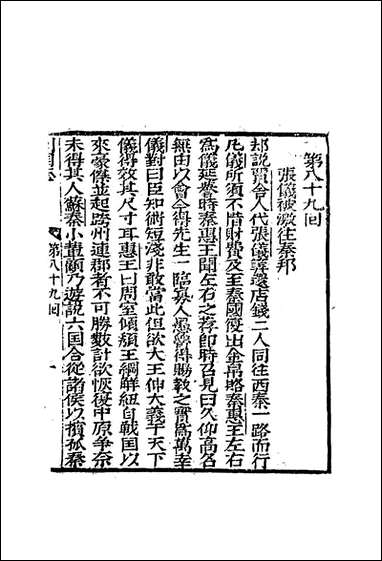 第八十九囘
張儀被激往秦邦
却說賈舍人代張儀筭還店錢二人同往西秦一路而行
凡儀所須不惜財費及至秦國復出金帛賂秦惠王左右
為儀延譽時秦惠王聞左右之荐即時召見曰久仰高名
無由以會今得先生一臨寡人愚
得賜教之實為萬幸
儀對曰臣知術短淺非敢當此但欲大王伸大義于天下
儀得效其尺寸耳惠王曰周室傾頹王綱解紐自戰国以
來豪傑並起跨州連郡者不可勝數計欲恢復中原爭奈
未得其人蘇秦小輩頗乃遊說六国合從諸侯以擯孤秦
第八十九囘
一